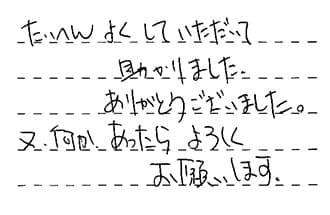 たいへん よくして いただいて
助かりました.
ありがとうございました。
又、何か あったら よろしく
お願いします.